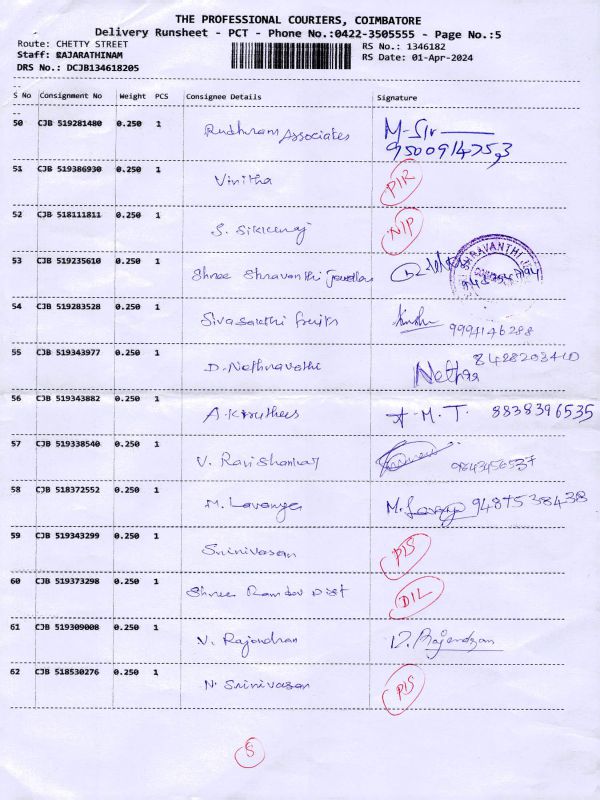 THE PROFESSIONAL COURIERS, COIMBATORE
Delivery Runsheet - PCT - Phone No.:0422-3505555 - Page No.:5
Route: CHETTY STREET RS No.: 1346182
Staff: RAJARATHINAM RS Date: 01-Apr-2024
DRS No.: DCJB134618205
S No Consignment No Weight PCS Consignee Details Signature
50 CJB 519281480 0.250 1 Rudhram Associates M-Sir
9500914753
51 CJB 519386930 0.250 1 Vinitha
52 CJB 518111811 0.250 1 S.
53 CJB 519235610 0.250 1 Shree Shravanthi Jewellers SHRAVANTHI
54 CJB 519283528 0.250 1 Sivasakthi fruits 9994146288
55 CJB 519343977 0.250 1 D. Nethravathi Nethra
56 CJB 519343882 0.250 1 A. A.M.T. 8838396535
57 CJB 519338540 0.250 1 V. Ravishankar 9843456537
58 CJB 518372552 0.250 1 M. Lavanya M. 9487538438
59 CJB 519343299 0.250 1 Srinivasan
60 CJB 519373298 0.250 1 Shree Ramdev Dist D/L
61 CJB 519309008 0.250 1 V. Rajendran D. Rajendran
62 CJB 518530276 0.250 1 N. Srinivasan
5